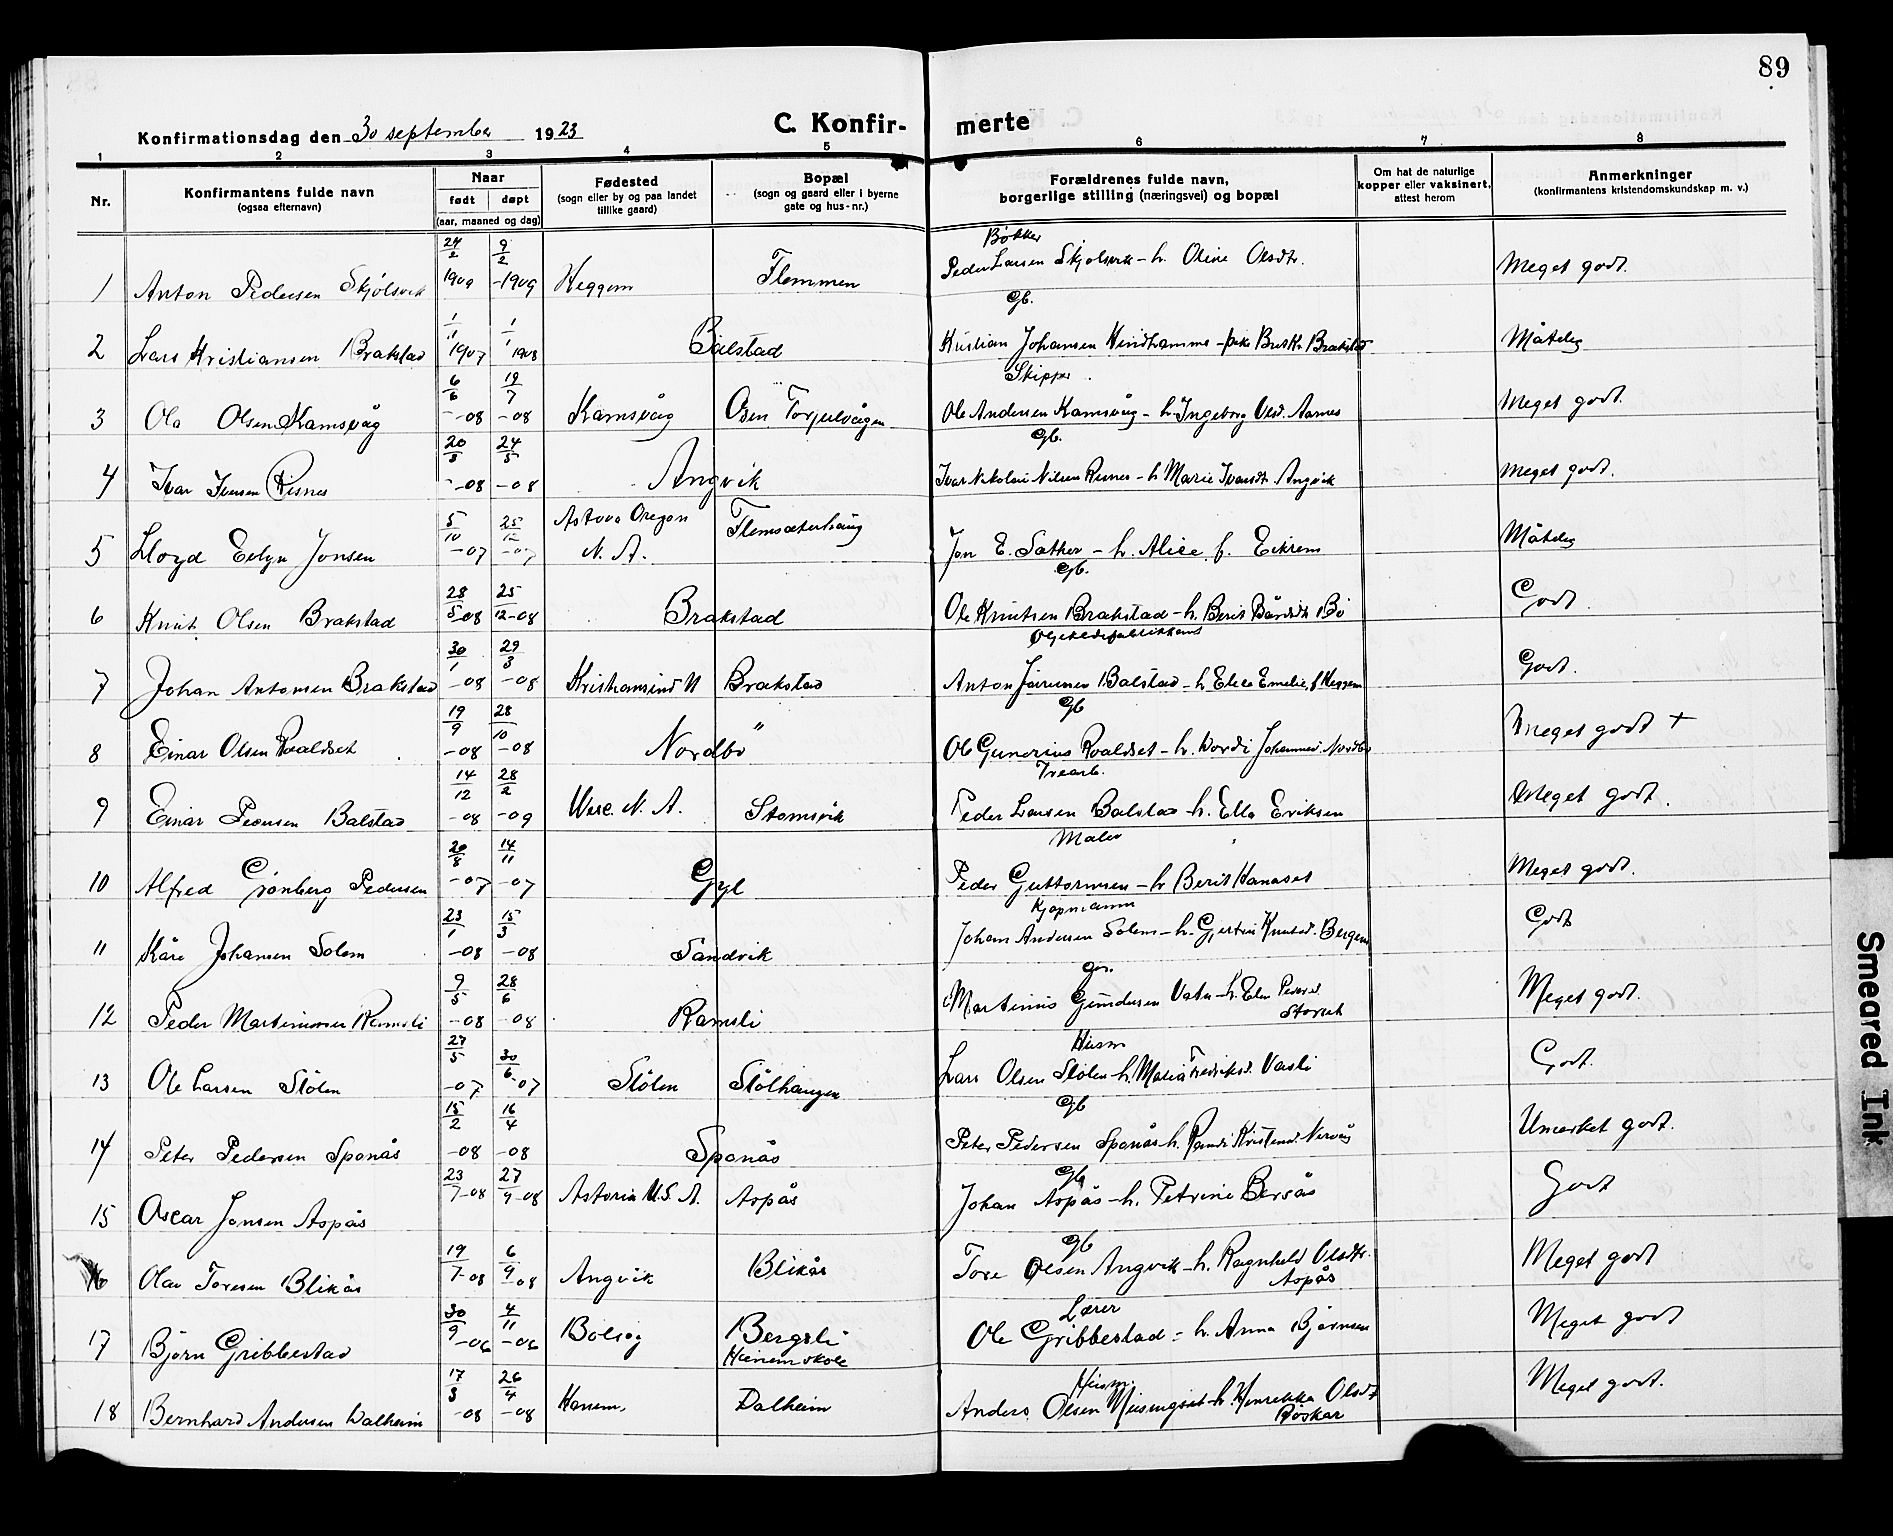 89
Konfirmationsdag den 30 september 1923
C. Konfir- merte
1 2 3 4 5 6 7 8
Nr.
Konfirmantens fulde navn
(ogsaa efternavn)
Naar
født døpt
(aar, maaned og dag)
Fødested
(sogn eller by og paa landet
tillike gaard)
Bopæl
(sogn og gaard eller i byerne
gate og hus-nr.)
Forældrenes fulde navn,
borgerlige stilling (næringsvei) og bopæl
Om hat de naturlige
kopper eller vaksinert,
attest herom
Anmerkninger
(konfirmantens kristendomskundskap m. v.)
Bøkker
1 Anton Pedersen Skjølsvik 24/2 1909 9/2 -1909 Heggem Flemmen Peder Larsen Skjølsvik - h. Oline Olsdtr. Meget godt.
Gb.
2 Lars Kristiansen Brakstad 1/1 1907 1/1 1908 Balstad Kristian Johansen - Brakstad Måtelig
Skipper
3 Ola Olsen Kamsvåg 6/6 -08 19/7 -08 Kamsvåg Osen Torjulvågen Ole Andersen Kamsvåg - h. Ingeborg Olsd. Aarnes Meget godt.
Gb.
4 Ivar Iversen Risnes 20/3 -08 24/5 -08 Angvik Ivar Nikolai Nilsen Risnes - h. Marie Ivarsdt. Angvik Meget godt.
5 Lloyd Evlyn Jonsen 5/10 -07 25/12 -07 Astoria Oregon N. A. Flemsæterhaug Jon E. Sæther - h. Alice f. Eikrem Måtelig
Gb.
6 Knut Olsen Brakstad 28/5-08 25/12-08 Brakstad Ole Knutsen Brakstad - h. Berit Bårdsdt. Bø Godt.
7 Johan Antonsen Brakstad 30/1 -08 29/3 -08 Kristiansund N Brakstad Anton Balstad - h. Elise Emelie f. Heggem Godt.
Gb
8 Einar Olsen Roaldset 19/9 -08 28/10 -08 Nordbø " Ole Gunerius Roaldset - h. Dordi Johannesd. Nordbø Meget godt +
Trearb.
9 Einar Pedersen Balstad 14/12 -08 28/2 -09 Wisc. N. A. Stomsvik Peder Larsen Balstad - h. Ella Eriksen Meget godt.
Maler
10 Alfred Grønberg Pedersen 20/8 -07 14/11 -07 Gyl Peder Guttormsen - h. Berit Hanaset Meget godt.
Kjøpmann
11 Kåre Johansen Solem 23/1 -08 15/3 -08 Sandvik Johan Andersen Solem - h. Gjertin Knutsd. Bergem Godt
12 Peder Martinusen Ramsli 9/5 -08 28/6 -08 Ramsli Martinus Gundersen - h. Elen Pedersd. Storset Meget godt.
Husm
13 Ole Larsen Stølen 27/5 -07 30/6 -07 Stølen Stølhaugen Lars Olsen Stølen - h. Maria Fredriksd. Vasli Godt.
Gb
14 Peter Pedersen Sponås 15/2 -08 16/4 -08 Sponås Peter Pedersen Sponås - h. Randi Kristensd. Nervåg Umerket godt.
Gb
15 Oscar Jonsen Aspås 23/7-08 27/9-08 Astoria U.S.A. Aspås Johan Aspås - h. Petrine Bersås Godt
Gb
16 Olav Toresen Blikås 19/7-08 6/9-08 Angvik Blikås Tore Olsen Angvik - h. Ragnhild Olsdtr. Aspås Meget godt
Lærer
17 Bjørn Gribbestad 30/9-06 4/11-06 Bolsøy Bergsli Heinem skole Ole Gribbestad - h. Anna Bjørnsen Meget godt
Husm.
18 Bernhard Andersen Dalheim 17/3 -08 26/4 -08 Hanem, Dalheim Anders Olsen Meisingset - h. Henrekka Olsdt Røskar Meget godt.
Smeared Ink